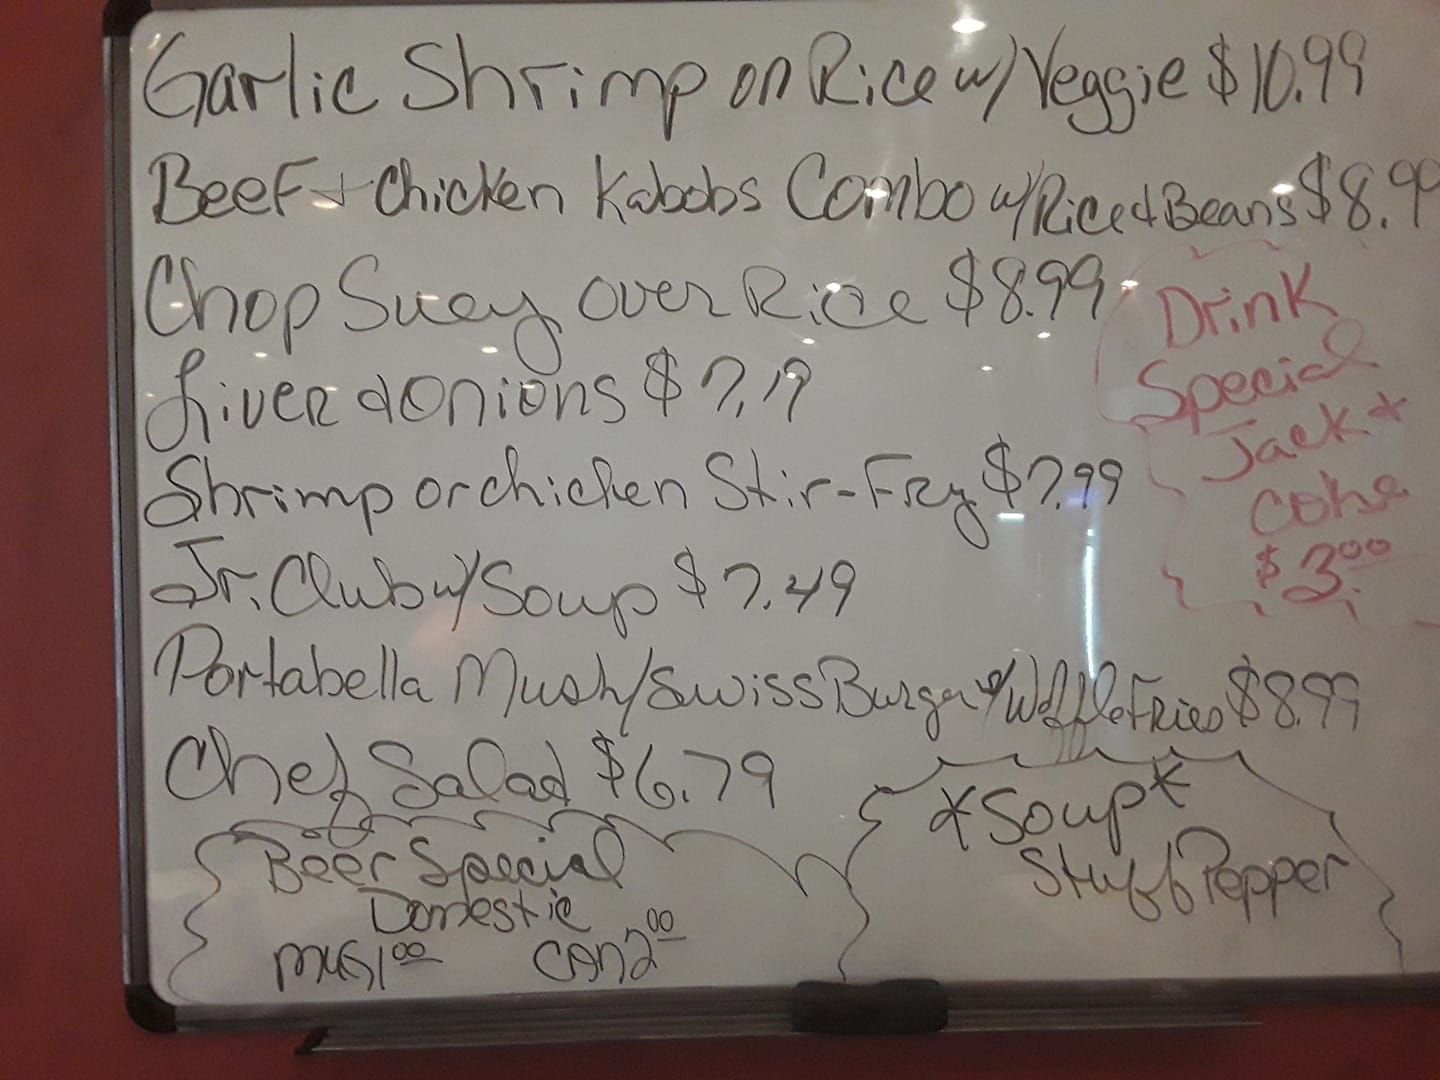 Garlic Shrimp on Rice w/Veggie $10.99
Beef + Chicken Kabobs Combo w/Rice + Beans $8.99
Chop Suey over Rice $8.99
Liver & Onions $7.19
Shrimp or chicken Stir-Fry $7.99
Jr. Club w/Soup $7.49
Portabella Mush/Swiss Burger w/Waffle Fries $8.99
Chef Salad $6.79
Drink
Special
Jack *
Coke
$3.00
Beer Special
Domestic
MUG 1.00 CAN 2.00
*Soup*
Stuff Pepper